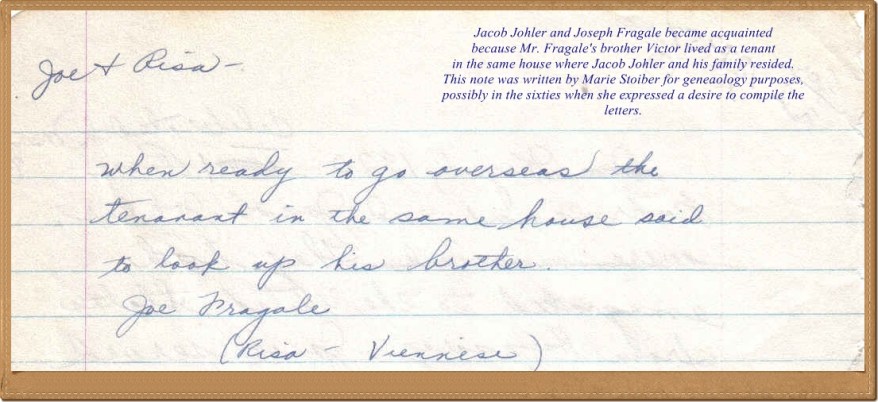 Jacob Johler and Joseph Fragale became acquainted
because Mr. Fragale's brother Victor lived as a tenant
in the same house where Jacob Johler and his family resided.
This note was written by Marie Stoiber for geneaology purposes,
possibly in the sixties when she expressed a desire to compile the
letters.
Joe + Risa -
when ready to go overseas the
tenanant in the same house said
to look up his brother.
Joe Fragale
(Risa - Viennese)